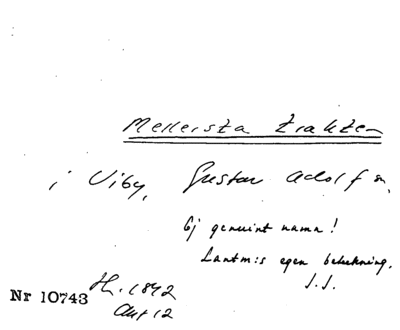 Mellersta trakten
i Viby, Gustav Adolf sn.
Ej genuint namn!
Lantm:s egen beteckning.
J.J.
Nr 10743 H. 1842
Akt 12